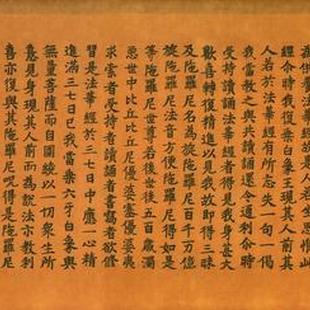 供養法華經故是人若坐思惟此
經爾時我復乘白象王現其人前其
人若於法華經有所忘失一句一偈
我當教之與共讀誦還令通利爾時
受持讀誦法華經者得見我身甚大
歡喜轉復精進以見我故即得三昧
及陀羅尼名為旋陀羅尼百千萬億
旋陀羅尼法音方便陀羅尼得如是
等陀羅尼世尊若後世後五百歲濁
惡世中比丘比丘尼優婆塞優婆夷
求索者受持者讀誦者書寫者欲修
習是法華經於三七日中應一心精
進滿三七日已我當乘六牙白象與
無量菩薩而自圍繞以一切眾生所
憙見身現其人前而為說法示教利
喜亦復與其陀羅尼呪得是陀羅尼